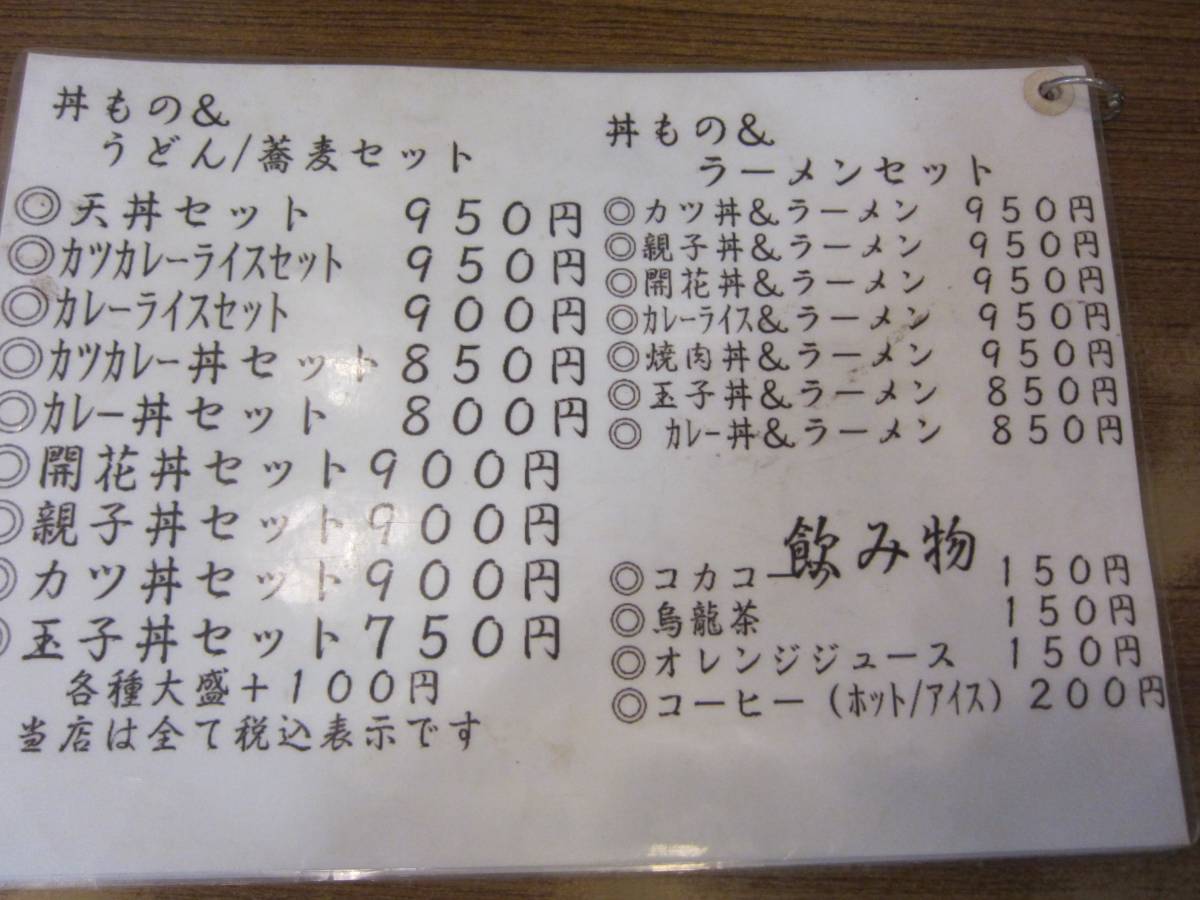 丼もの&
うどん/蕎麦セット
◎天丼セット 950円
◎カツカレーライスセット 950円
◎カレーライスセット 900円
◎カツカレー丼セット 850円
◎カレー丼セット 800円
◎開花丼セット 900円
◎親子丼セット 900円
◎カツ丼セット 900円
◎玉子丼セット 750円
各種大盛+100円
当店は全て税込表示です
丼もの&
ラーメンセット
◎カツ丼&ラーメン 950円
◎親子丼&ラーメン 950円
◎開花丼&ラーメン 950円
◎カレーライス&ラーメン 950円
◎焼肉丼&ラーメン 950円
◎玉子丼&ラーメン 850円
◎カレー丼&ラーメン 850円
飲み物
◎コカコー 150円
◎烏龍茶 150円
◎オレンジジュース 150円
◎コーヒー(ホット/アイス) 200円